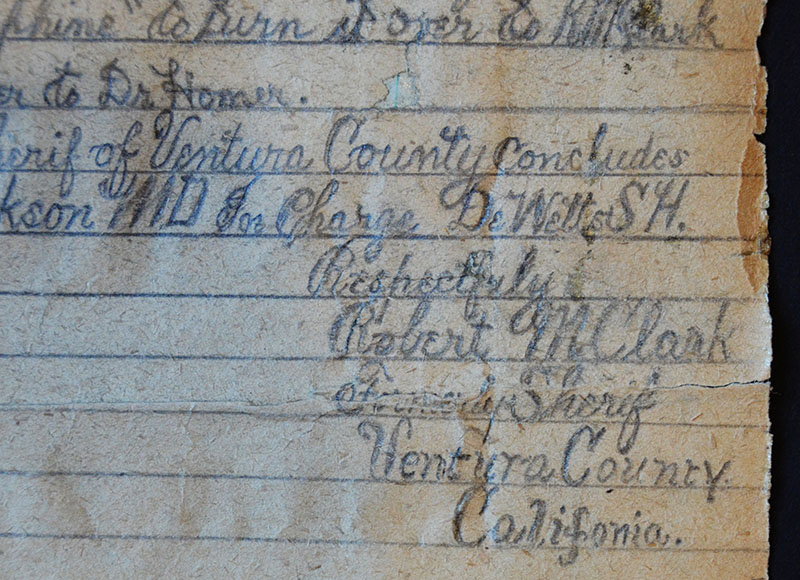 phine" to turn it over to R M Clark
or to Dr Homer.
herif of Ventura County concludes
kson MD for Charge De Witts S H.
Respectfuly
Robert M Clark
Formerly Sherif
Ventura County
Califonia.